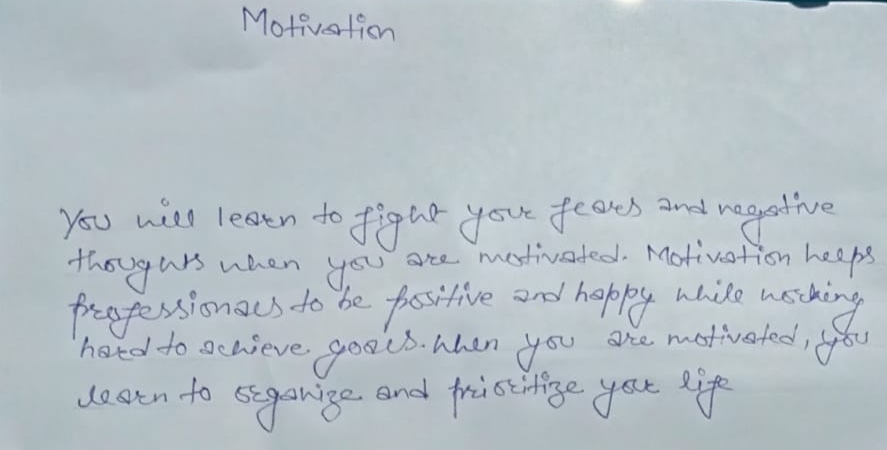 Motivation
You will learn to fight your fears and negative
thoughts when you are motivated. Motivation helps
professionals to be positive and happy while working
hard to achieve goals. When you are motivated, you
learn to organize and prioritize your life